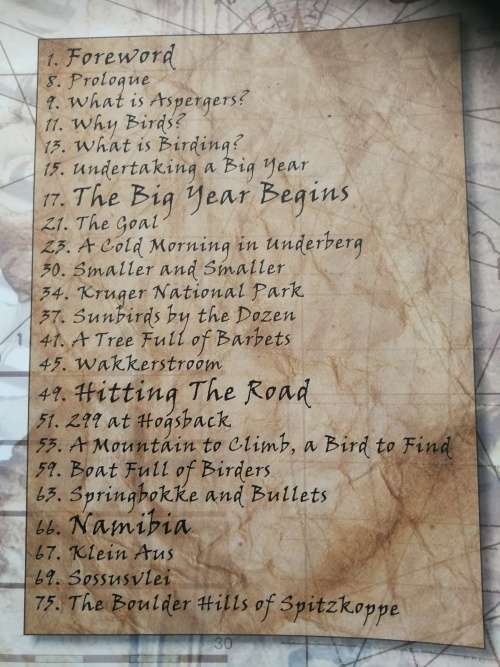 1. Foreword
8. Prologue
9. What is Aspergers?
11. Why Birds?
13. What is Birding?
15. Undertaking a Big Year
17. The Big Year Begins
21. The Goal
23. A Cold Morning in Underberg
30. Smaller and Smaller
34. Kruger National Park
37. Sunbirds by the Dozen
41. A Tree Full of Barbets
45. Wakkerstroom
49. Hitting The Road
51. 299 at Hogsback
53. A Mountain to Climb, a Bird to Find
59. Boat Full of Birders
63. Springbokke and Bullets
66. Namibia
67. Klein Aus
69. Sossusvlei
75. The Boulder Hills of Spitzkoppe
30